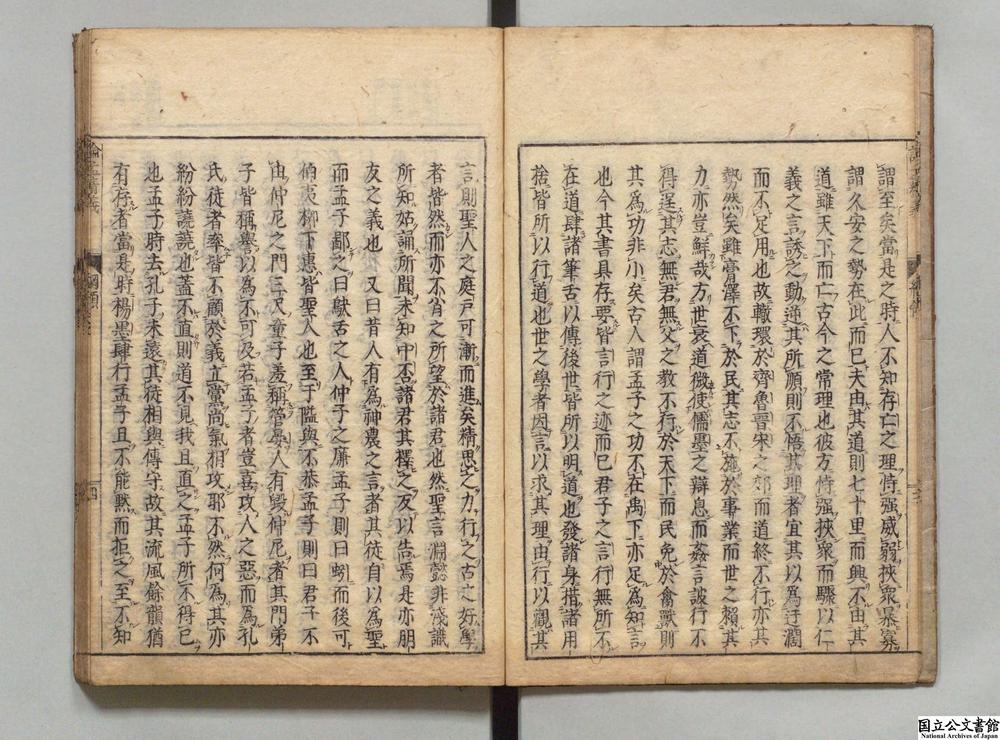 謂至矣當是之時人不知存亡之理恃强威弱挾衆暴寡
謂久安之勢在此而已夫由其道則七十里而興不由其
道雖天下而亡古今之常理也彼方恃强挾衆而驟以仁
義之言誘之動逆其所順則不悟其理者宜其以爲迂濶
而不足用也故轍環於齊魯晉宋之郊而道終不行亦其
勢然矣雖膏澤不下於民其志不施於事業而世之賴其
力亦豈鮮哉方世衰道微使儒墨之辯息而姦言詖行不
得逞其志無君無父之教不行於天下而民免於禽獸則
其爲功非小矣古人謂孟子之功不在禹下亦足爲知言
也今其書具存要皆言行之迹而已君子之言行無所不
在道肆諸筆舌以傳後世皆所以明道也發諸身措諸用
捨皆所以行道也世之學者因言以求其理由行以觀其
言則聖人之庭戸可漸而進矣精思之力行之古之好學
者皆然而亦不肖之所望於諸君也然聖言淵懿非淺識
所知姑誦所聞未知中否諸君其擇之反以告焉是亦朋
友之義也 又曰昔人有爲神農之言者其徒自以爲聖
而孟子鄙之曰鴃舌之人仲子之廉孟子則曰蚓而後可
伯夷柳下惠皆聖人也至于隘與不恭孟子則曰君子不
由仲尼之門三尺童子羞稱管晏人有毀仲尼者其門弟
子皆稱譽以爲不可及若孟子者豈喜攻人之惡而爲孔
氏徒者率皆不顧於義立黨尚氣相攻耶不然何爲其亦
紛紛譊譊也蓋不直則道不見我且直之孟子所不得已
也孟子時去孔子未遠其徒相與傳守故其流風餘韻猶
有存者當是時楊墨肆行孟子且不能黙而拒之至不知
綱領
四
国立公文書館
National Archives of Japan